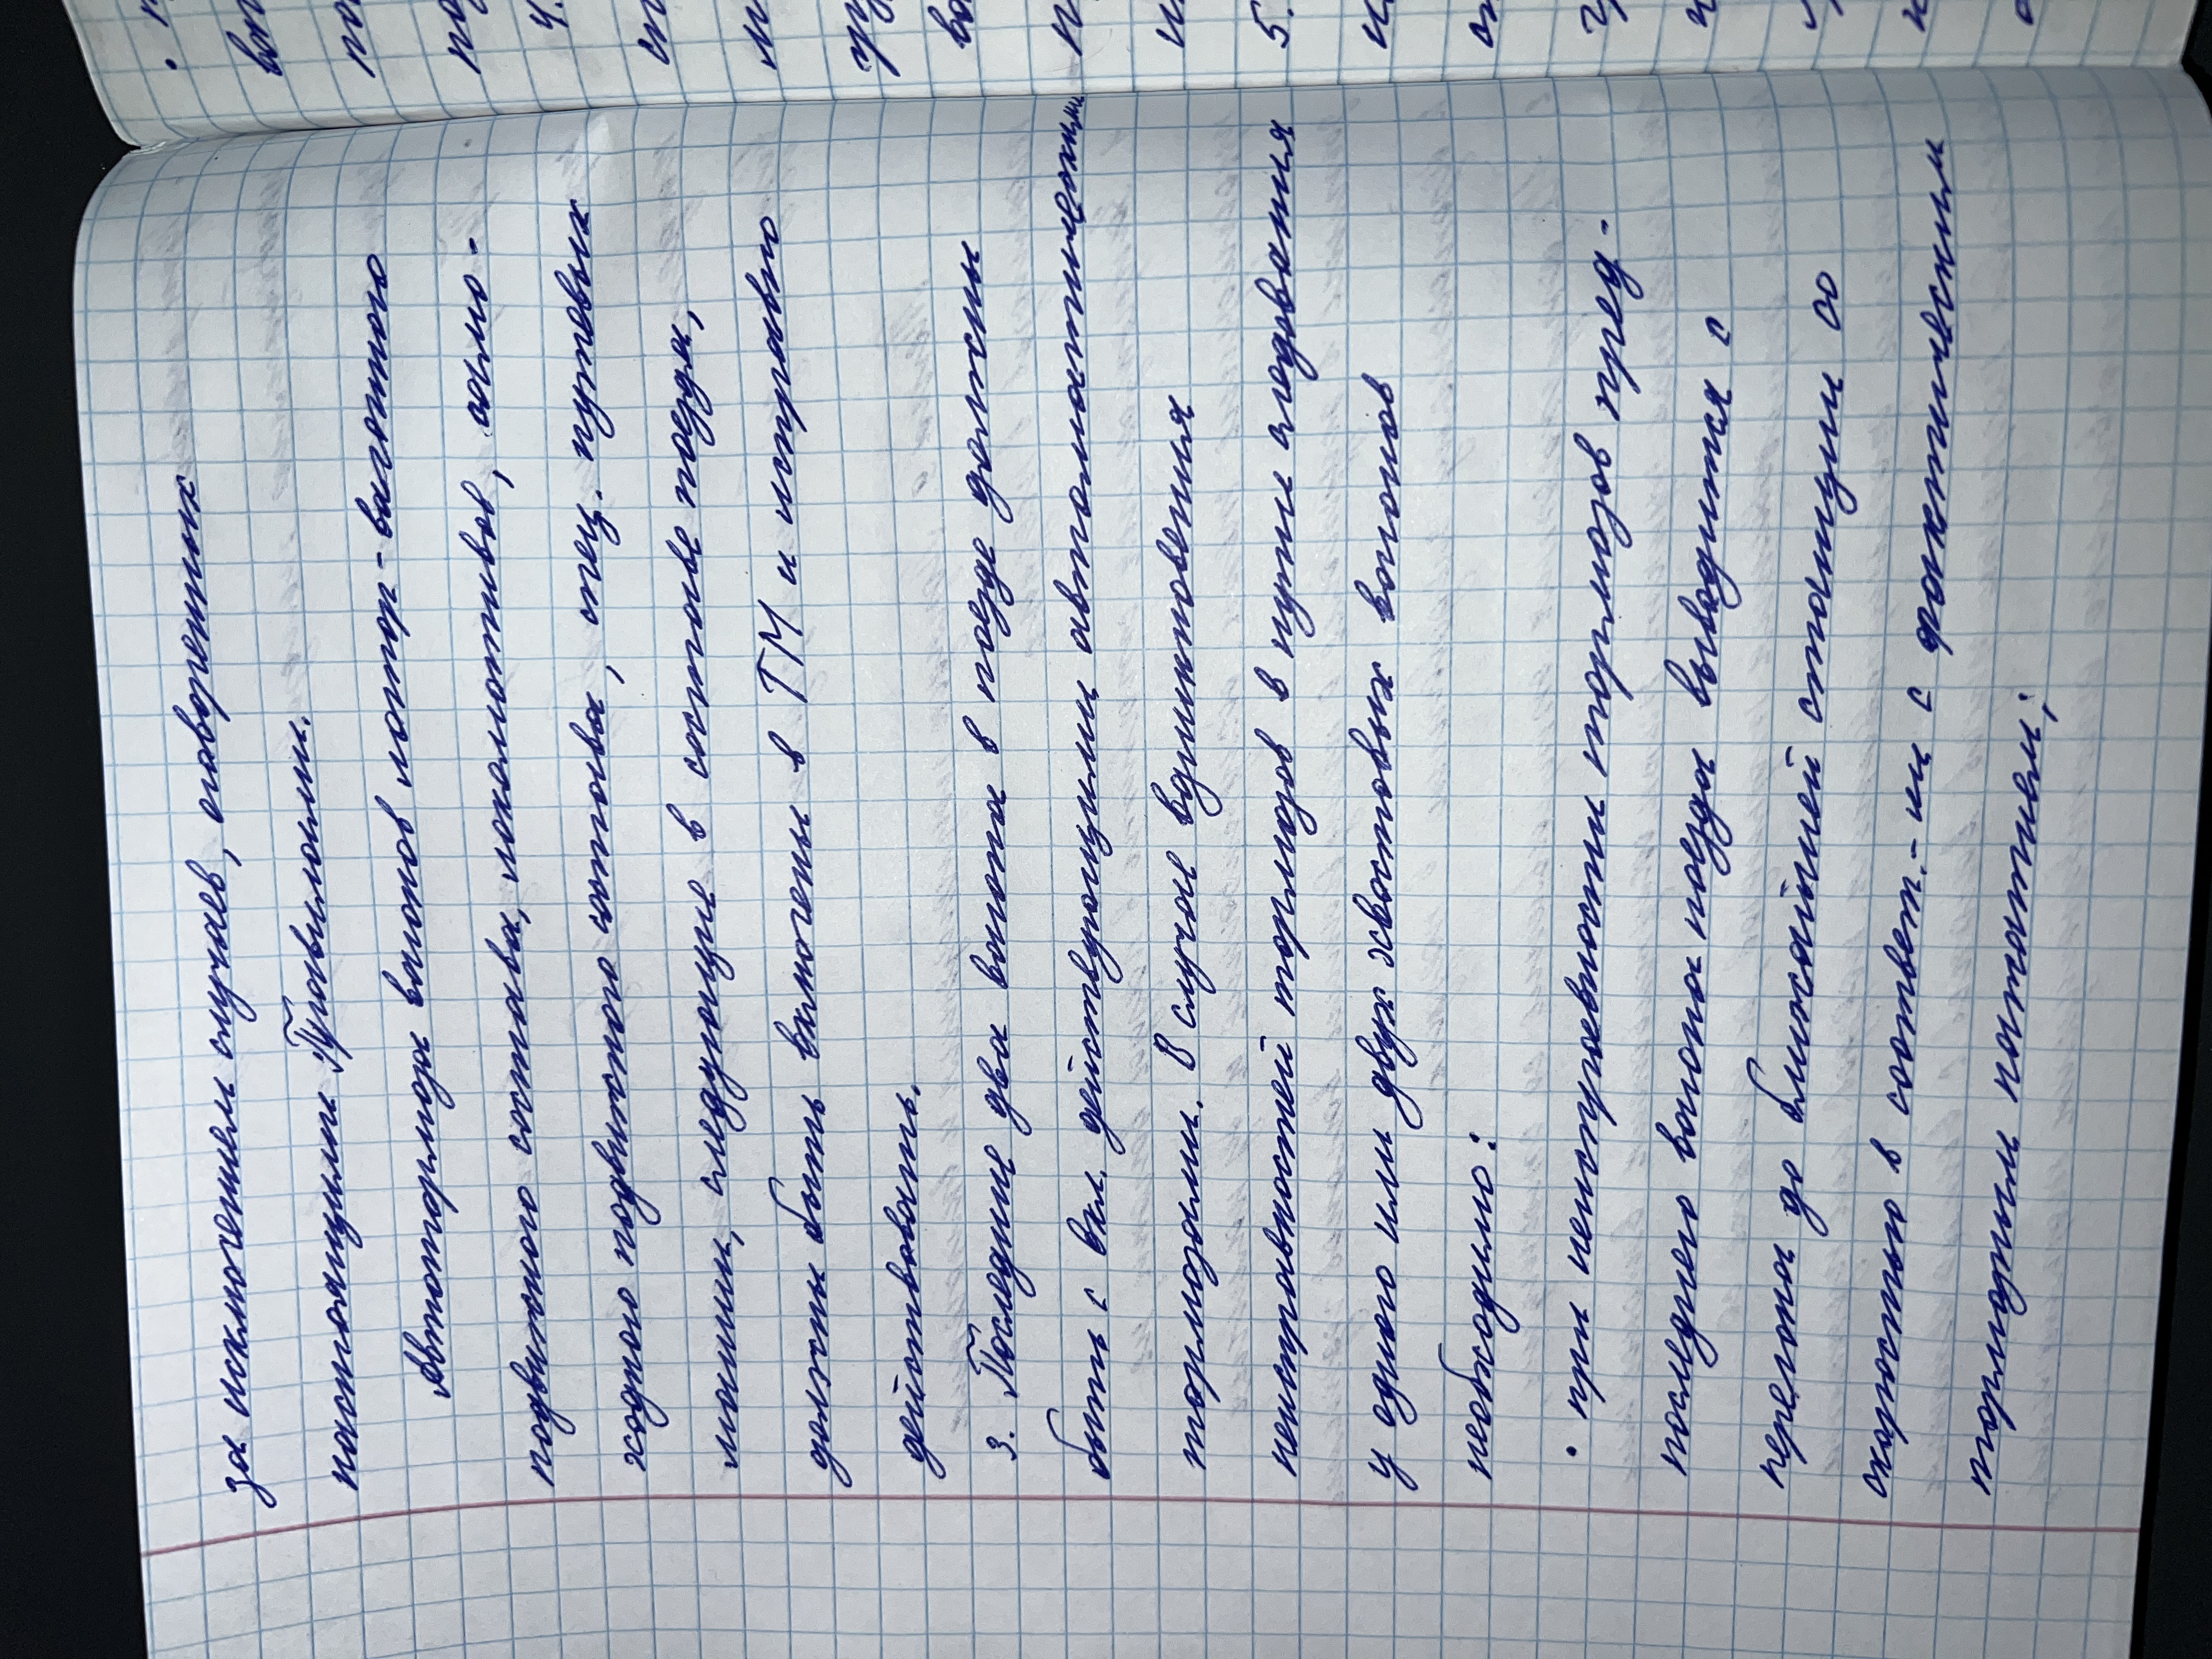 за исключением случаев, оговоренных
настоящими Правилами.
Автотормоза вагонов мотор-вагонного
подвижного состава, локомотивов, само-
ходного подвижного состава, спец. путевых
машин, следующие в составе поезда,
должны быть включены в ТМ и исправно
действовать.
3. Последние два вагона в поезде должны
быть с вкл. действующими автоматическими
тормозами. В случае возникновения
неисправностей тормозов в пути следования
у одного или двух хвостовых вагонов
необходимо:
• при неисправности тормозов пред-
последнего вагона поезда выводится с
перегона до ближайшей станции со
скоростью в соответ.-ии с фактическим
тормозным нажатием;